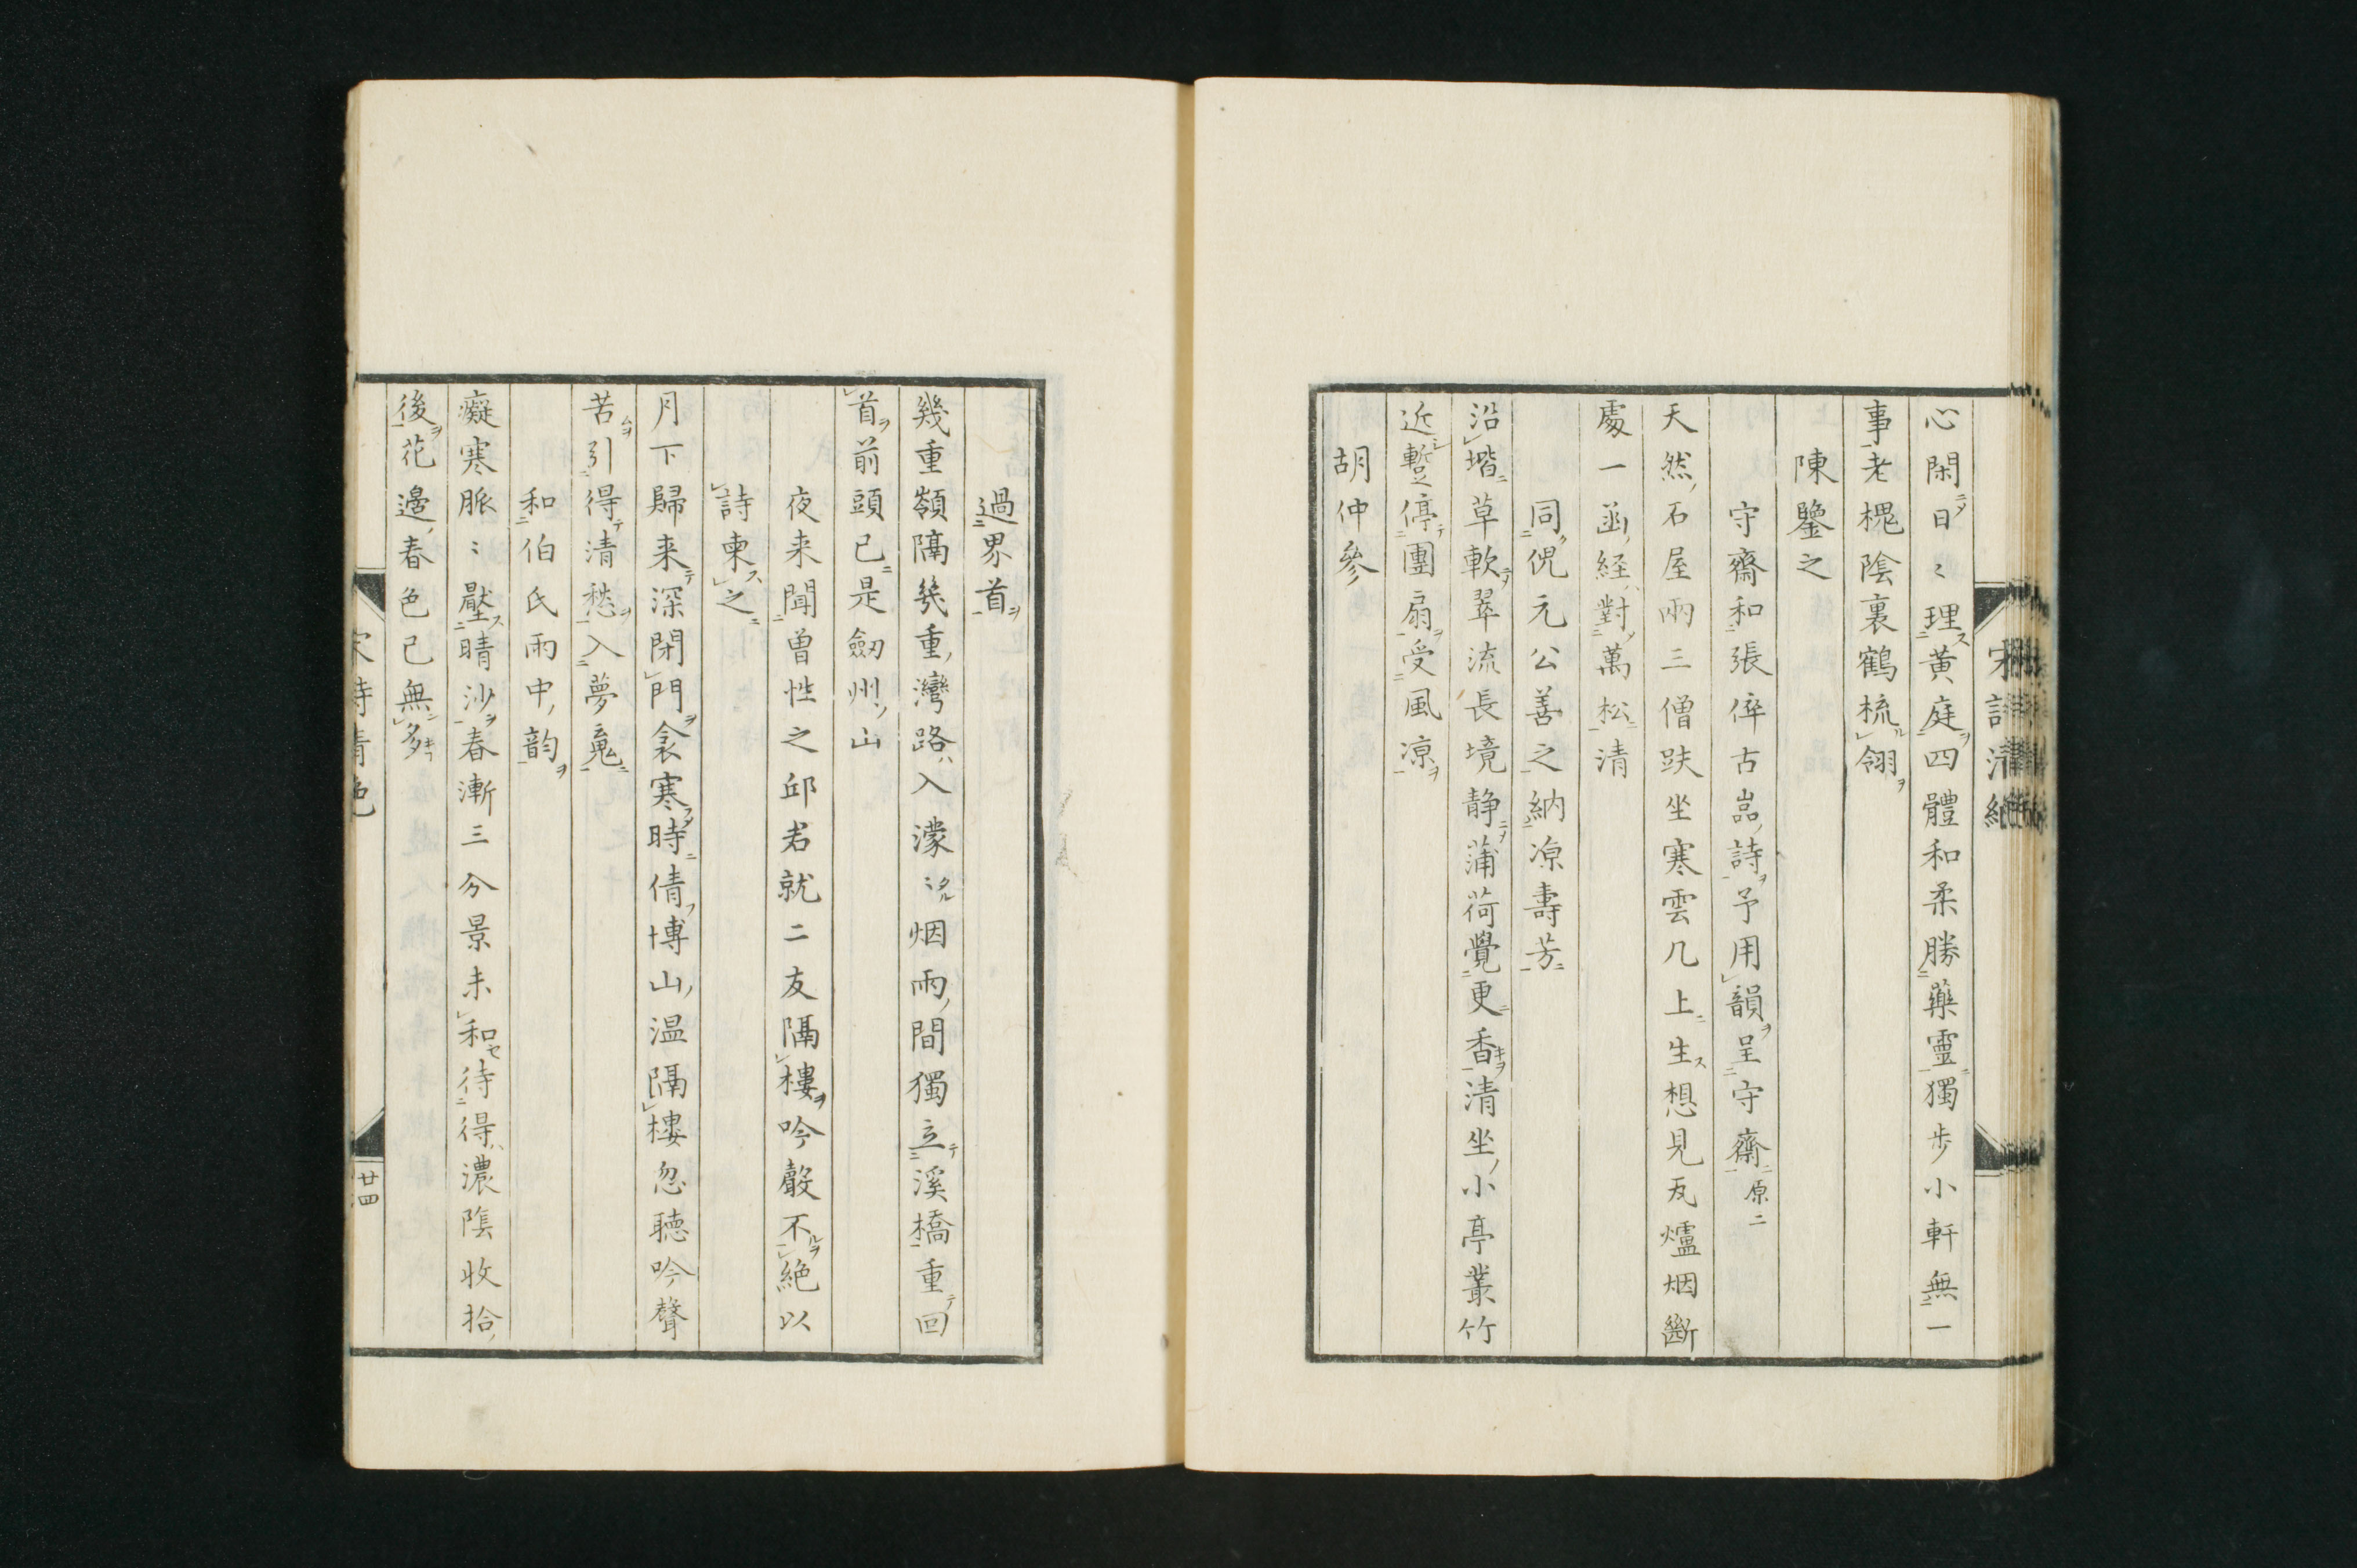 心閑日〻理黄庭四體和柔勝藥靈獨歩小軒無一
事老槐陰裏鶴梳翎
陳鑒之
守齋和張倅古嵓詩予用韻呈守齋原二
天然石屋兩三僧趺坐寒雲几上生想見瓦爐烟斷
處一函経對萬松清
同倪元公善之納凉壽芳
沿堦草軟翠流長境静蒲荷覺更香清坐小亭叢竹
近蹔停團扇受風凉
胡仲參
過界首
幾重嶺隔幾重灣路入濛〻烟雨間獨立溪橋重回
首前頭已是劔州山
夜来聞曽性之邱君就二友隔樓吟聲不絶以
詩柬之
月下歸来深閉門衾寒時倩博山温隔樓忽聴吟聲
苦引得清愁入夢䰟
和伯氏雨中韵
癡寒脈〻壓晴沙春漸三分景未和待得濃陰收拾
後花邉春色已無多
宋詩清絶
廿四